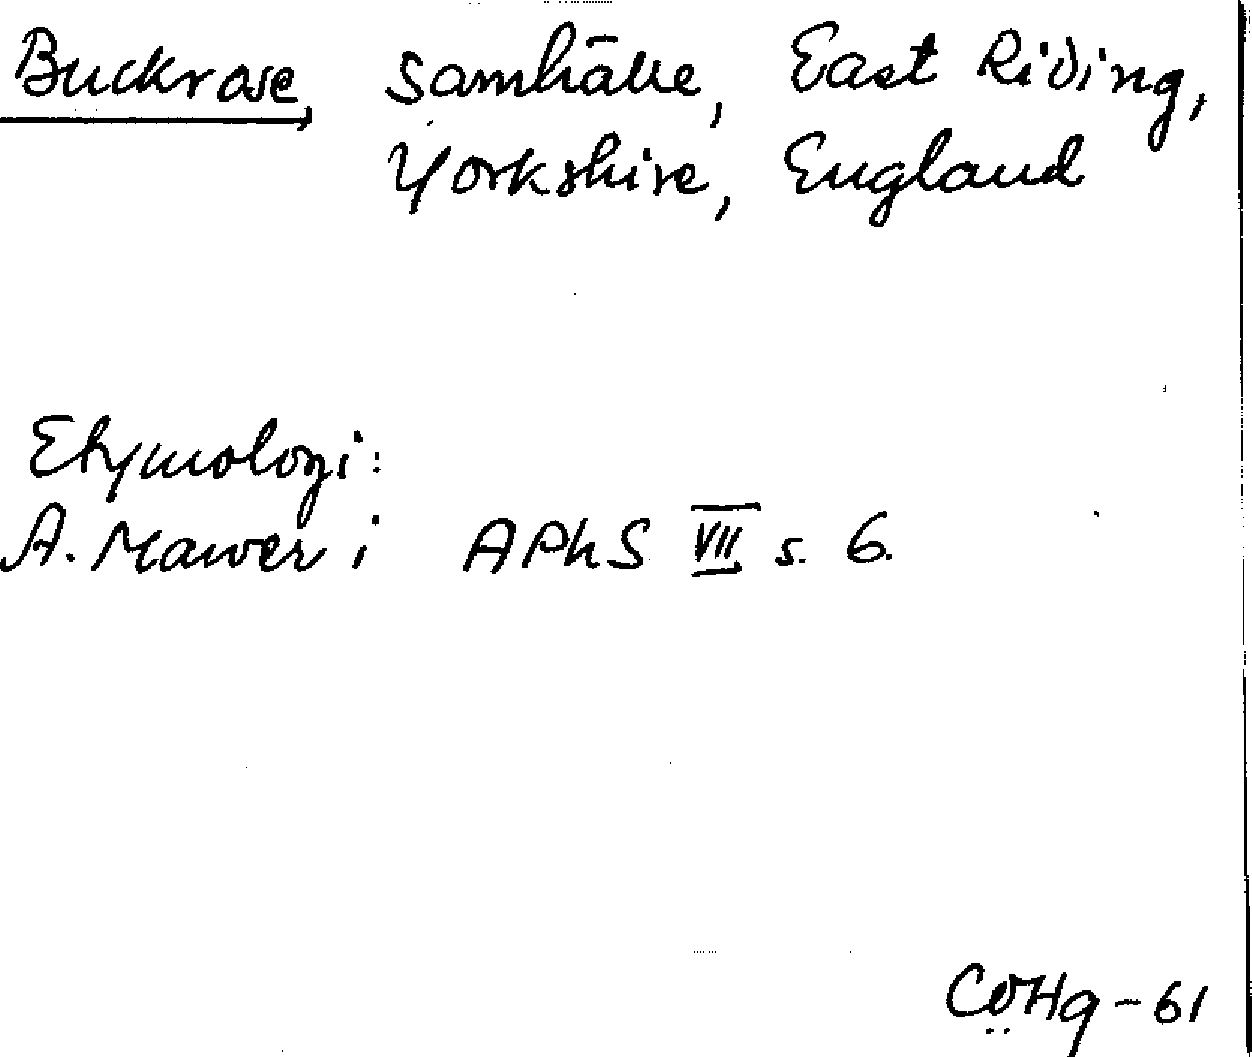 Buckrose, samhälle, East Riding,
Yorkshire, England
Etymologi:
A. Mawer i APhS VII s. 6.
CÖHg-61